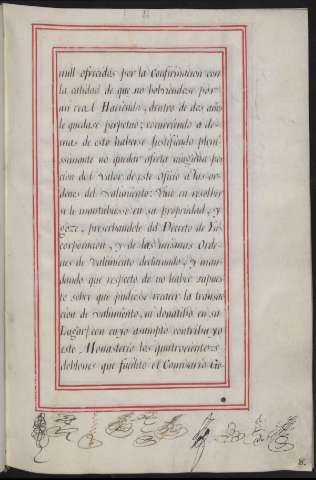 mill ofrecidos por la Confirmacion con
la calidad de que no bolviendose por
mi real Hacienda, dentro de dos años
le quedase perpetuo; concurriendo a de-
mas de esto haberse Justificado pleni-
ssimamente no quedar ofeta ninguna por
cion del Valor de este oficio a las or-
denes del valimiento: Vine en resolber
se le mantubiesse en su propriedad, y
goze, preserbandole del Decreto de In-
corporacion, y de las mismas Orde-
nes de Valimiento declarando, y man-
dando que respecto de no haber supues-
to sobre que pudiesse recaer la transac
cion de Valimiento, ni donatibo en su
Lugar con cuyo asumpto contribuyo
este Monasterio los quatrocientos
doblones que facilitò el Comisario Ge-